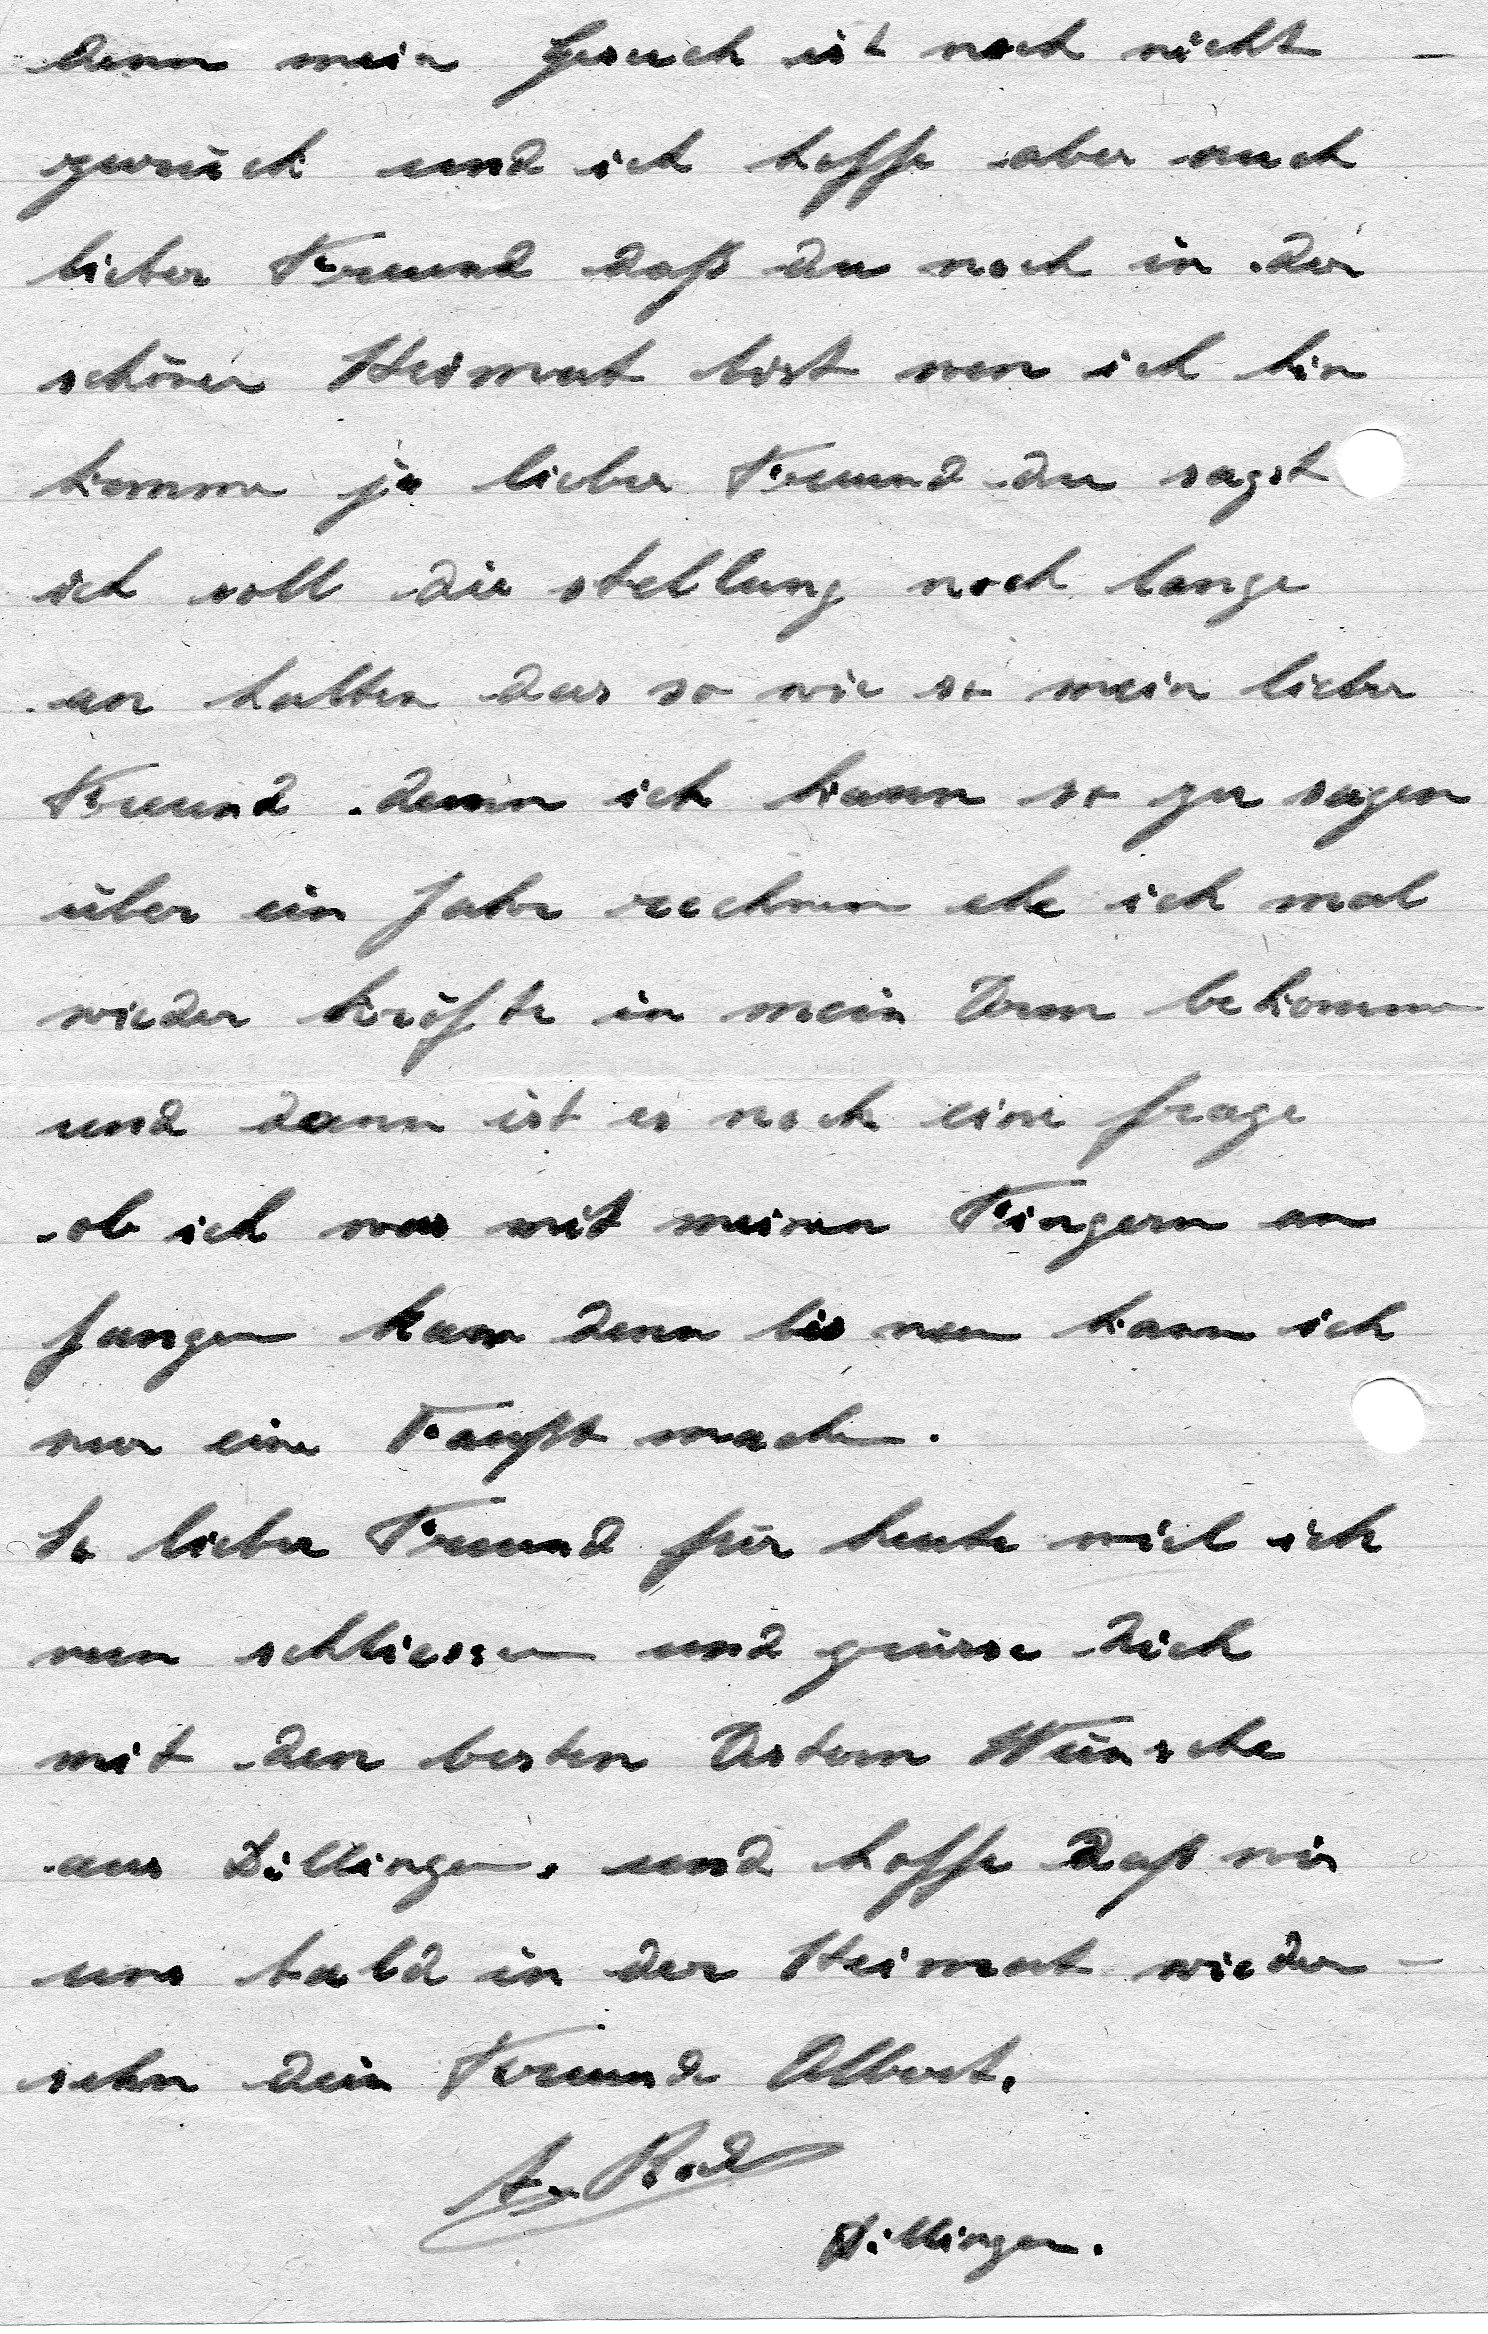 denn mein Gesuch ist noch nicht –
zurück und ich hoffe aber auch
lieber Freund daß du noch in der
schönen Heimat bist wen ich hin
komme ja lieber Freund du sagst
ich soll die stellung noch lange
an halten das so wie so mein lieber
Freund denn ich kann so zu sagen
über ein Jahr rechnen ehe ich mal
wieder kräfte in mein Arm bekomme
und dann ist es noch eine frage
ob ich was mit meinen Fingern an
fangen kann denn bis nun kann ich
nur eine Faußt machen.
So lieber Freund für heute wil ich
nun schliessen und grüsse dich
mit den besten Ostern Wünsche
aus Dillingen. und hoffe daß wir
uns bald in der Heimat wieder –
sehn dein Freund Albert.
A.
Dillingen.